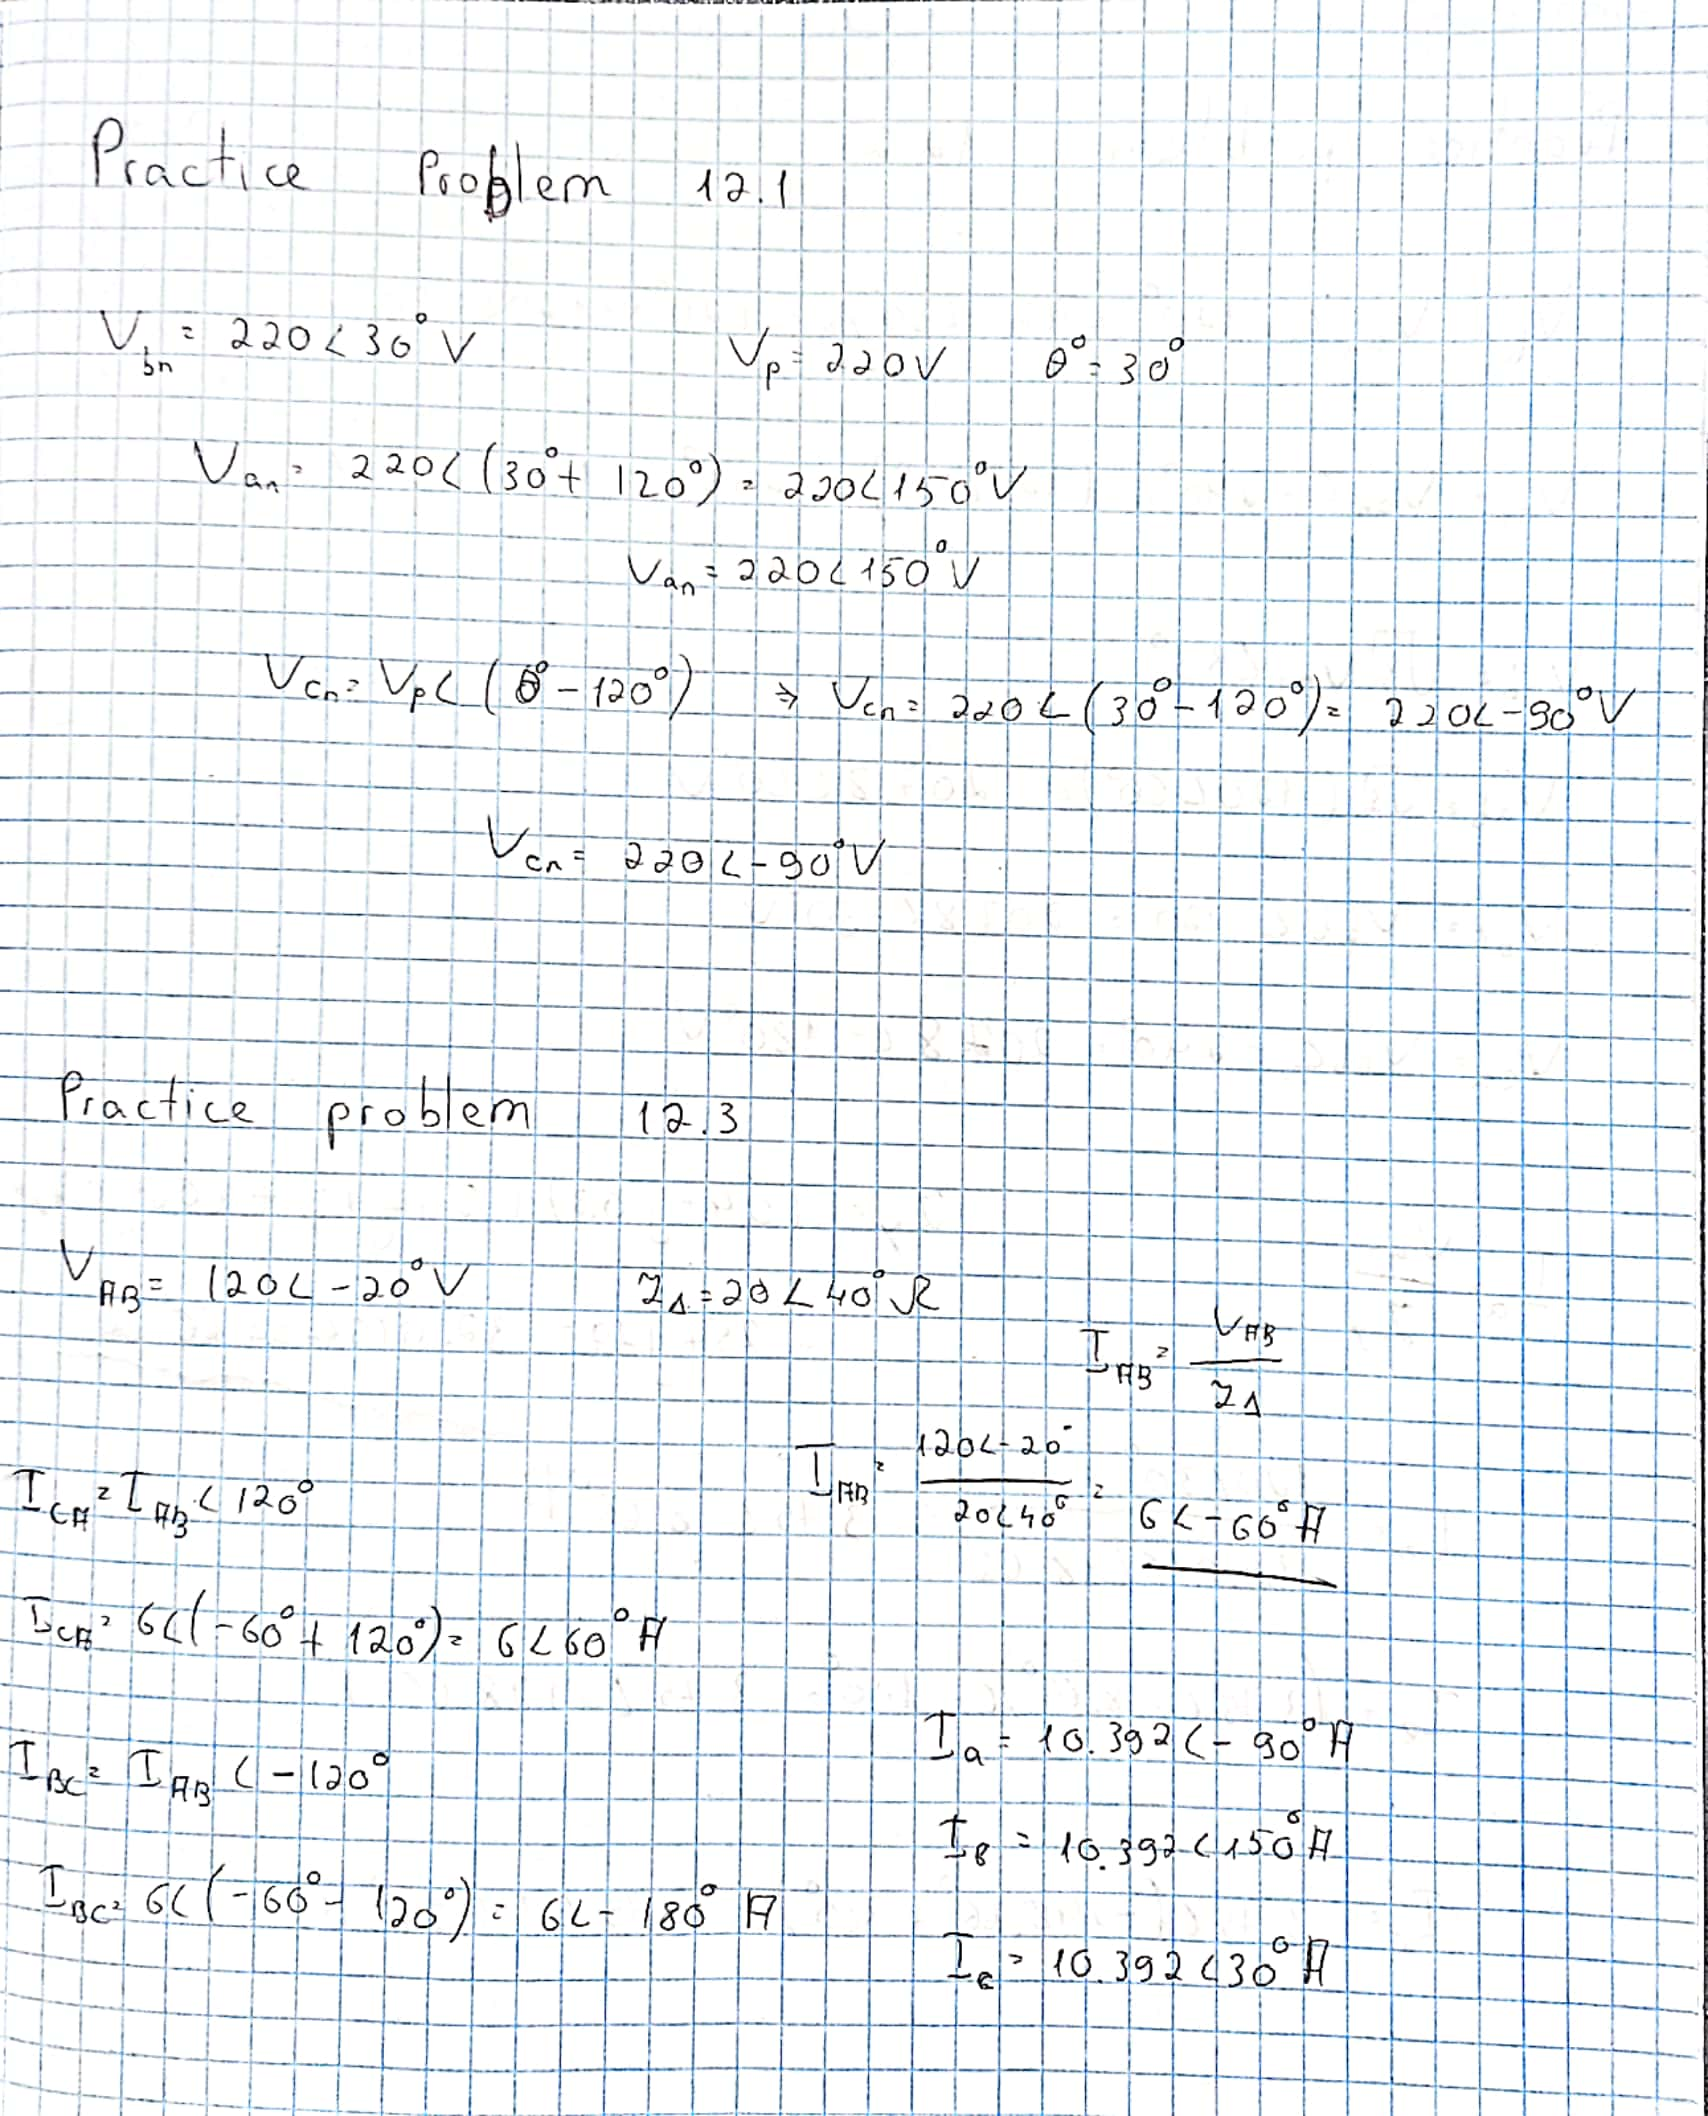 Practice Problem 12.1
Vbn = 220<30° V Vp = 220V θ° = 30°
Van = 220<(30°+ 120°) = 220<150°V
Van = 220<150°V
Vcn = Vp<(θ°-120°) ⇒ Vcn = 220<(30°-120°) = 220<-90°V
Vcn = 220<-90°V
Practice problem 12.3
VAB = 120<-20°V ZΔ = 20<40°Ω
IAB = VAB / ZΔ
IAB = 120<-20° / 20<40° = 6<-60°A
ICA = IAB<120°
ICA = 6<(-60°+120°) = 6<60°A
IBC = IAB<-120°
IBC = 6<(-60°-120°) = 6<-180° A
Ia = 10.392<-90°A
IB = 10.392<150°A
Ic = 10.392<30°A